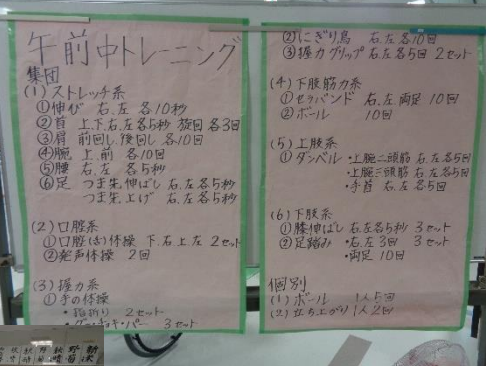 午前中トレーニング
集団
(1) ストレッチ系
①伸び 右、左 各10秒
②首 上、下、右、左各5秒 旋回 各3回
③肩 前回し、後回し 各10回
④腕 上、前 各10回
⑤腰 右、左 各5秒
⑥足 つま先伸ばし 右、左各5秒
つま先上げ 右、左各5秒
(2) 口腔系
①口腔(お)体操 下右上左 2セット
②発声体操 2回
(3) 握力系
①手の体操
・指折り 2セット
・グー・チョキ・パー 3セット
②にぎり 右、左各10回
③握力グリップ 右左各5回 2セット
(4) 下肢筋力系
①セラバンド 右、左、両足 10回
②ボール 10回
(5) 上肢系
①ダンベル ・上腕二頭筋 右、左各5回
・上腕三頭筋 右、左各5回
・手首 右、左各5回
(6) 下肢系
①膝伸ばし 右、左各5秒 3セット
②足踏み ・右左3回 3セット
・両足 10回
個別
(1) ボール 1人5回
(2) 立ち上がり 1人2回